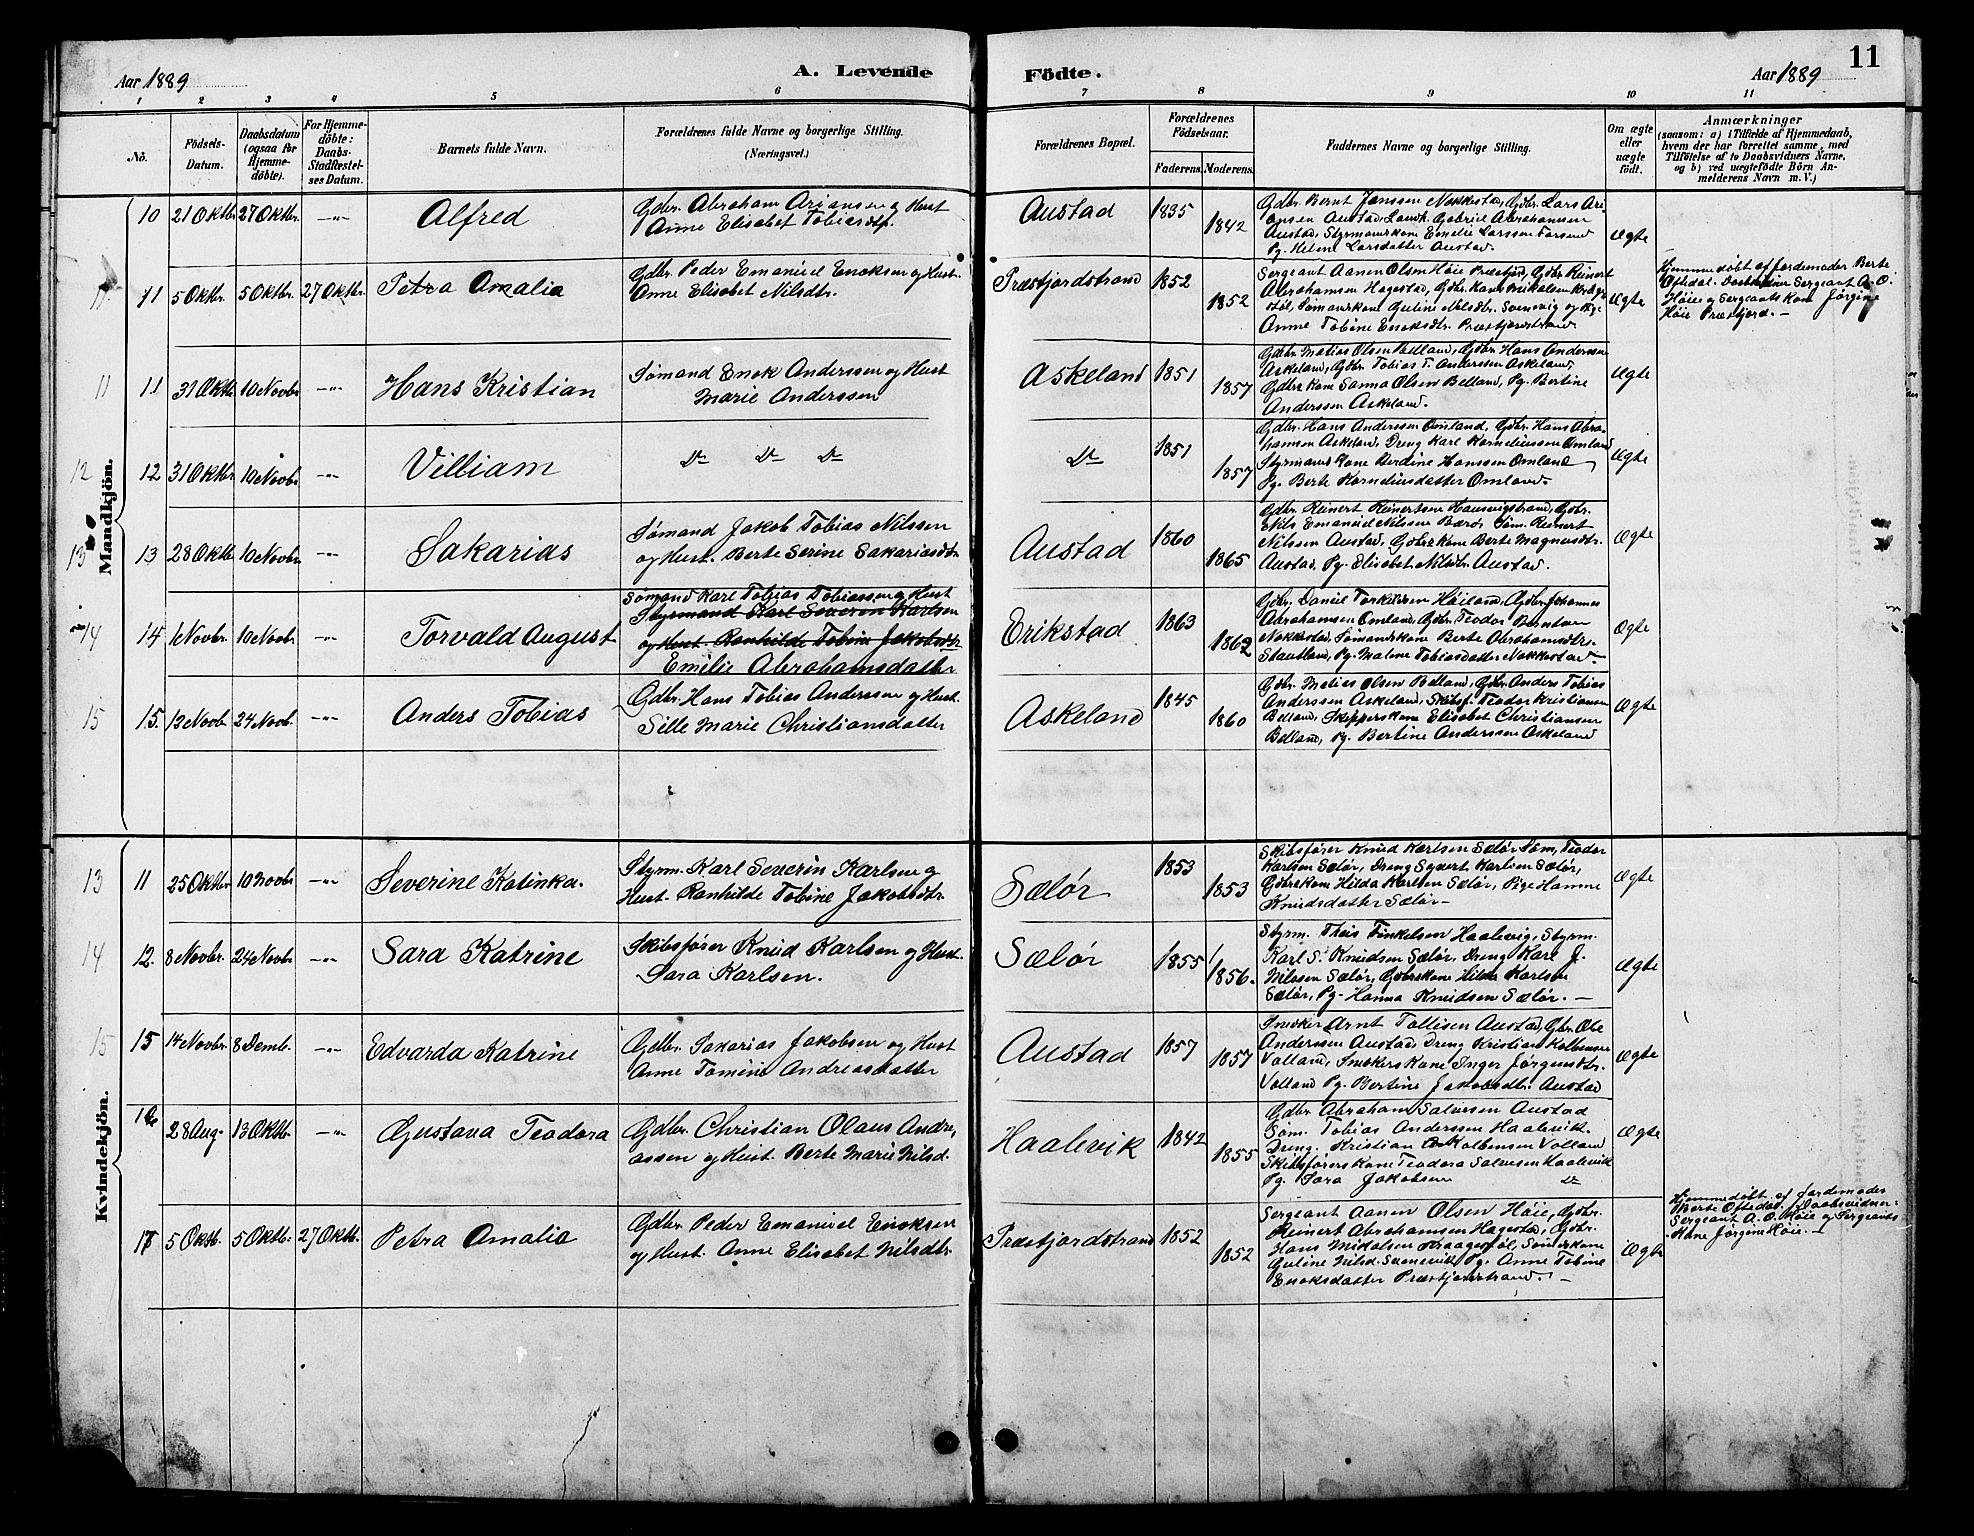 Aar 1889
A. Levende
Födte.
Aar 1889
11
1 2 3 4 5 6 7 8 9 10 11
No.
Födsels-
Datum.
Daabsdatum
(ogsaa for
Hjemme-
döbte).
For Hjemme-
döbte:
Daabs-
Stadfæstel-
ses Datum.
Barnets fulde Navn.
Forældrenes fulde Navne og borgerlige Stilling.
(Næringsvei.)
Forældrenes Bopæl.
Forældrenes
Födselsaar.
Faderens. Moderens.
Faddernes Navne og borgerlige Stilling.
Om ægte
eller
uægte
födt.
Anmærkninger
(saasom: a) i Tilfælde af Hjemmedaab,
hvem der har forrettet samme, med
Tilföielse af to Daabsvidners Navne,
og b) ved uægtefödte Börn An-
melderens Navn m. V.)
Mandkjön.
10 21 Oktbr. 27 Oktbr. -"- Alfred
Gdbr. Abraham Ariansen og Hust
Anne Elisabet Tobiasdtr.
Austad 1835 1842
Gdbr. Bernt Janssen Nøkkestad, Gdbr. Lars Ari-
ansen Austad, Landh. Gabriel Abrahamsen
Austad, Styrmanskone Emelie Larssen Farsund
Pg. Helene Larsdatter Austad.
Ægte
11 5 Oktbr. 5 Oktbr. 27 Oktbr. Petra Amalia
Gdbr. Peder Emanuel Enoksen og Hust.
Anne Elisabet Nilsdtr.
Præstfjordstrand 1852 1852
Sergeant Aanen Olsen Høie Præstfjord, Gdbr. Reinert
Abrahamsen Hagestad, Gdbr. Hans Mikalsen Kraage-
støl, Sømandskone Guline Nilsdtr. Svennevig og Pige
Anne Tobine Enoksdtr. Præstfjordstrand.
Ægte
Hjemmedøbt af Jordemoder Berte
Oftedal. Daabsvidner Sergeant A. O.
Høie og Sergeants kone Jørgine
Høie Præstfjord. -
11 11 31 Oktbr. 10 Novbr. -"- Hans Kristian
Sømand Enok Anderssen og Hust
Marie Anderssen
Askeland 1851 1857
Gdbr. Matias Olsen Belland, Gdbr. Hans Anderssen
Askeland, Gdbr. Tobias T. Anderssen Askeland,
Gdbrs kone Sanna Olsen Belland, Pg. Bertine
Anderssen Askeland.
Ægte
12 12 31 Oktbr. 10 Novbr. -"- Villiam
Do Do Do
Do 1851 1857
Gdbr. Hans Anderssen Omland, Gdbr. Hans Abra-
hamsen Askeland, Dreng Karl Korneliussen Omland
Styrmands kone Berdine Hanssen Omland
Pg. Berte Korneliusdatter Omland.
Ægte
13 13 28 Oktbr. 10 Novbr. -"- Sakarias
Sømand Jakob Tobias Nilssen
og Hust. Berte Serine Sakariasdtr.
Austad 1860 1865
Gdbr. Reinert Reinertsen Hausvigstrand, Gdbr.
Nils Emanuel Nilssen Barø, Søm. Reinert
Nilssen Austad, Gdbrs kone Berte Magnusdtr.
Austad, Pg. Elisabet Nilsdtr. Austad.
Ægte
14 14 1 Novbr. 10 Novbr. -"- Torvald August
Sømand Karl Tobias Tobiassen og Hust
Styrmand Karl Severin Karlsen
og Hust. Ranhilde Tobine Jakobsdtr.
Emilie Abrahamsdatter
Erikstad 1863 1862
Gdbr. Daniel Torkelsen Høiland, Gdbr. Johannes
Abrahamsen Omland, Gdbr. Teodor Berntsen
Nøkkestad, Sømandskone Berte Abrahamsdtr.
Stautland, Pg. Malene Tobiasdatter Nøkkestad.
Ægte
15 15. 13 Novb. 24 Novb. -"- Anders Tobias
Gdbr. Hans Tobias Anderssen og Hust.
Sille Marie Christiansdatter
Askeland 1845 1860
Gdbr. Matias Olsen Belland, Gdbr. Anders Tobias
Anderssen Askeland, Skibsf. Teodor Kristiansen
Belland, Skipperskone Elisabet Christiansen
Belland, Pg. Bertine Anderssen Askeland
Ægte
Kvindekjön.
13 11 25 Oktbr. 10 Novbr. -"- Severine Katinka.
Styrm. Karl Severin Karlsen og
Hust. Ranhilde Tobine Jakobsdtr.
Sælør 1853 1853
Skibsfører Knud Karlsen Sælør, Søm, Teodor
Karlsen Sælør, Dreng Syvert Karlsen Sælør,
Gdbrs kone Hilda Karlsen Sælør, Pige Hanne
Knudsdatter Sælør. -
Ægte
14 12. 8 Novbr. 24 Novbr. -"- Sara Katrine
Skibsfører Knud Karlsen og Hust.
Sara Karlsen.
Sælør 1855 1856.
Styrm. Theis Tinkelsen Haalevig, Styrm.
Karl S. Knudsen Sælør, Dreng Karl J.
Nilssen Sælør, Gdbrs kone Hilda Karlsen
Sælør, Pg. Hanna Knudsen Sælør. -
Ægte
15 15 14 Novbr. 8 Demb. -"- Edvarda Katrine
Gdbr. Sakarias Jakobsen og Hust
Anne Tomine Andreasdatter
Austad 1857 1857
Snøker Arnt Tollisen Austad, Gbr. Ole
Anderssen Austad Dreng Kristian Kolbensen
Volland, Snøkers Kone Inger Jørgensdtr.
Volland Pg. Bertine Jakobsdtr. Austad
Ægte
16 28 Aug. 13 Oktb. -"- Gustava Teodora
Gdbr. Christian Olaus Andre-
assen og Hust. Berte Marie Nilsd.
Haalevik 1842 1855
Gdbr. Abraham Salvesen Austad
Søm. Tobias Anderssen Haalevik.
Dreng. Kristian Kolbensen Volland
Skibsførers Kone Teodora Salvesen Haalevik
Pg. Sara Jakobsen Do
Ægte
17 5 Oktb. 5 Oktb. 27 Oktb. Petra Amalia
Gdbr. Peder Emanuel Enoksen
og Hust. Anne Elisabet Nilsdtr.
Præstfjordstrand 1852 1852
Sergeant Aanen Olsen Høie, Gdbr.
Reinert Abrahamsen Hagestad, Gdbr.
Hans Mikalsen Kraagestøl, Sømdskone
Guline Nilsd. Svennevik, Pg. Anne Tobine
Enoksdatter Præstfjordstrand. -
Ægte
Hjemmedøbt af Jordemoder
Berte Oftedal. Daabsvidner
Sergeant A. O. Høie og Sergeants
Kone Jørgine Høie. -